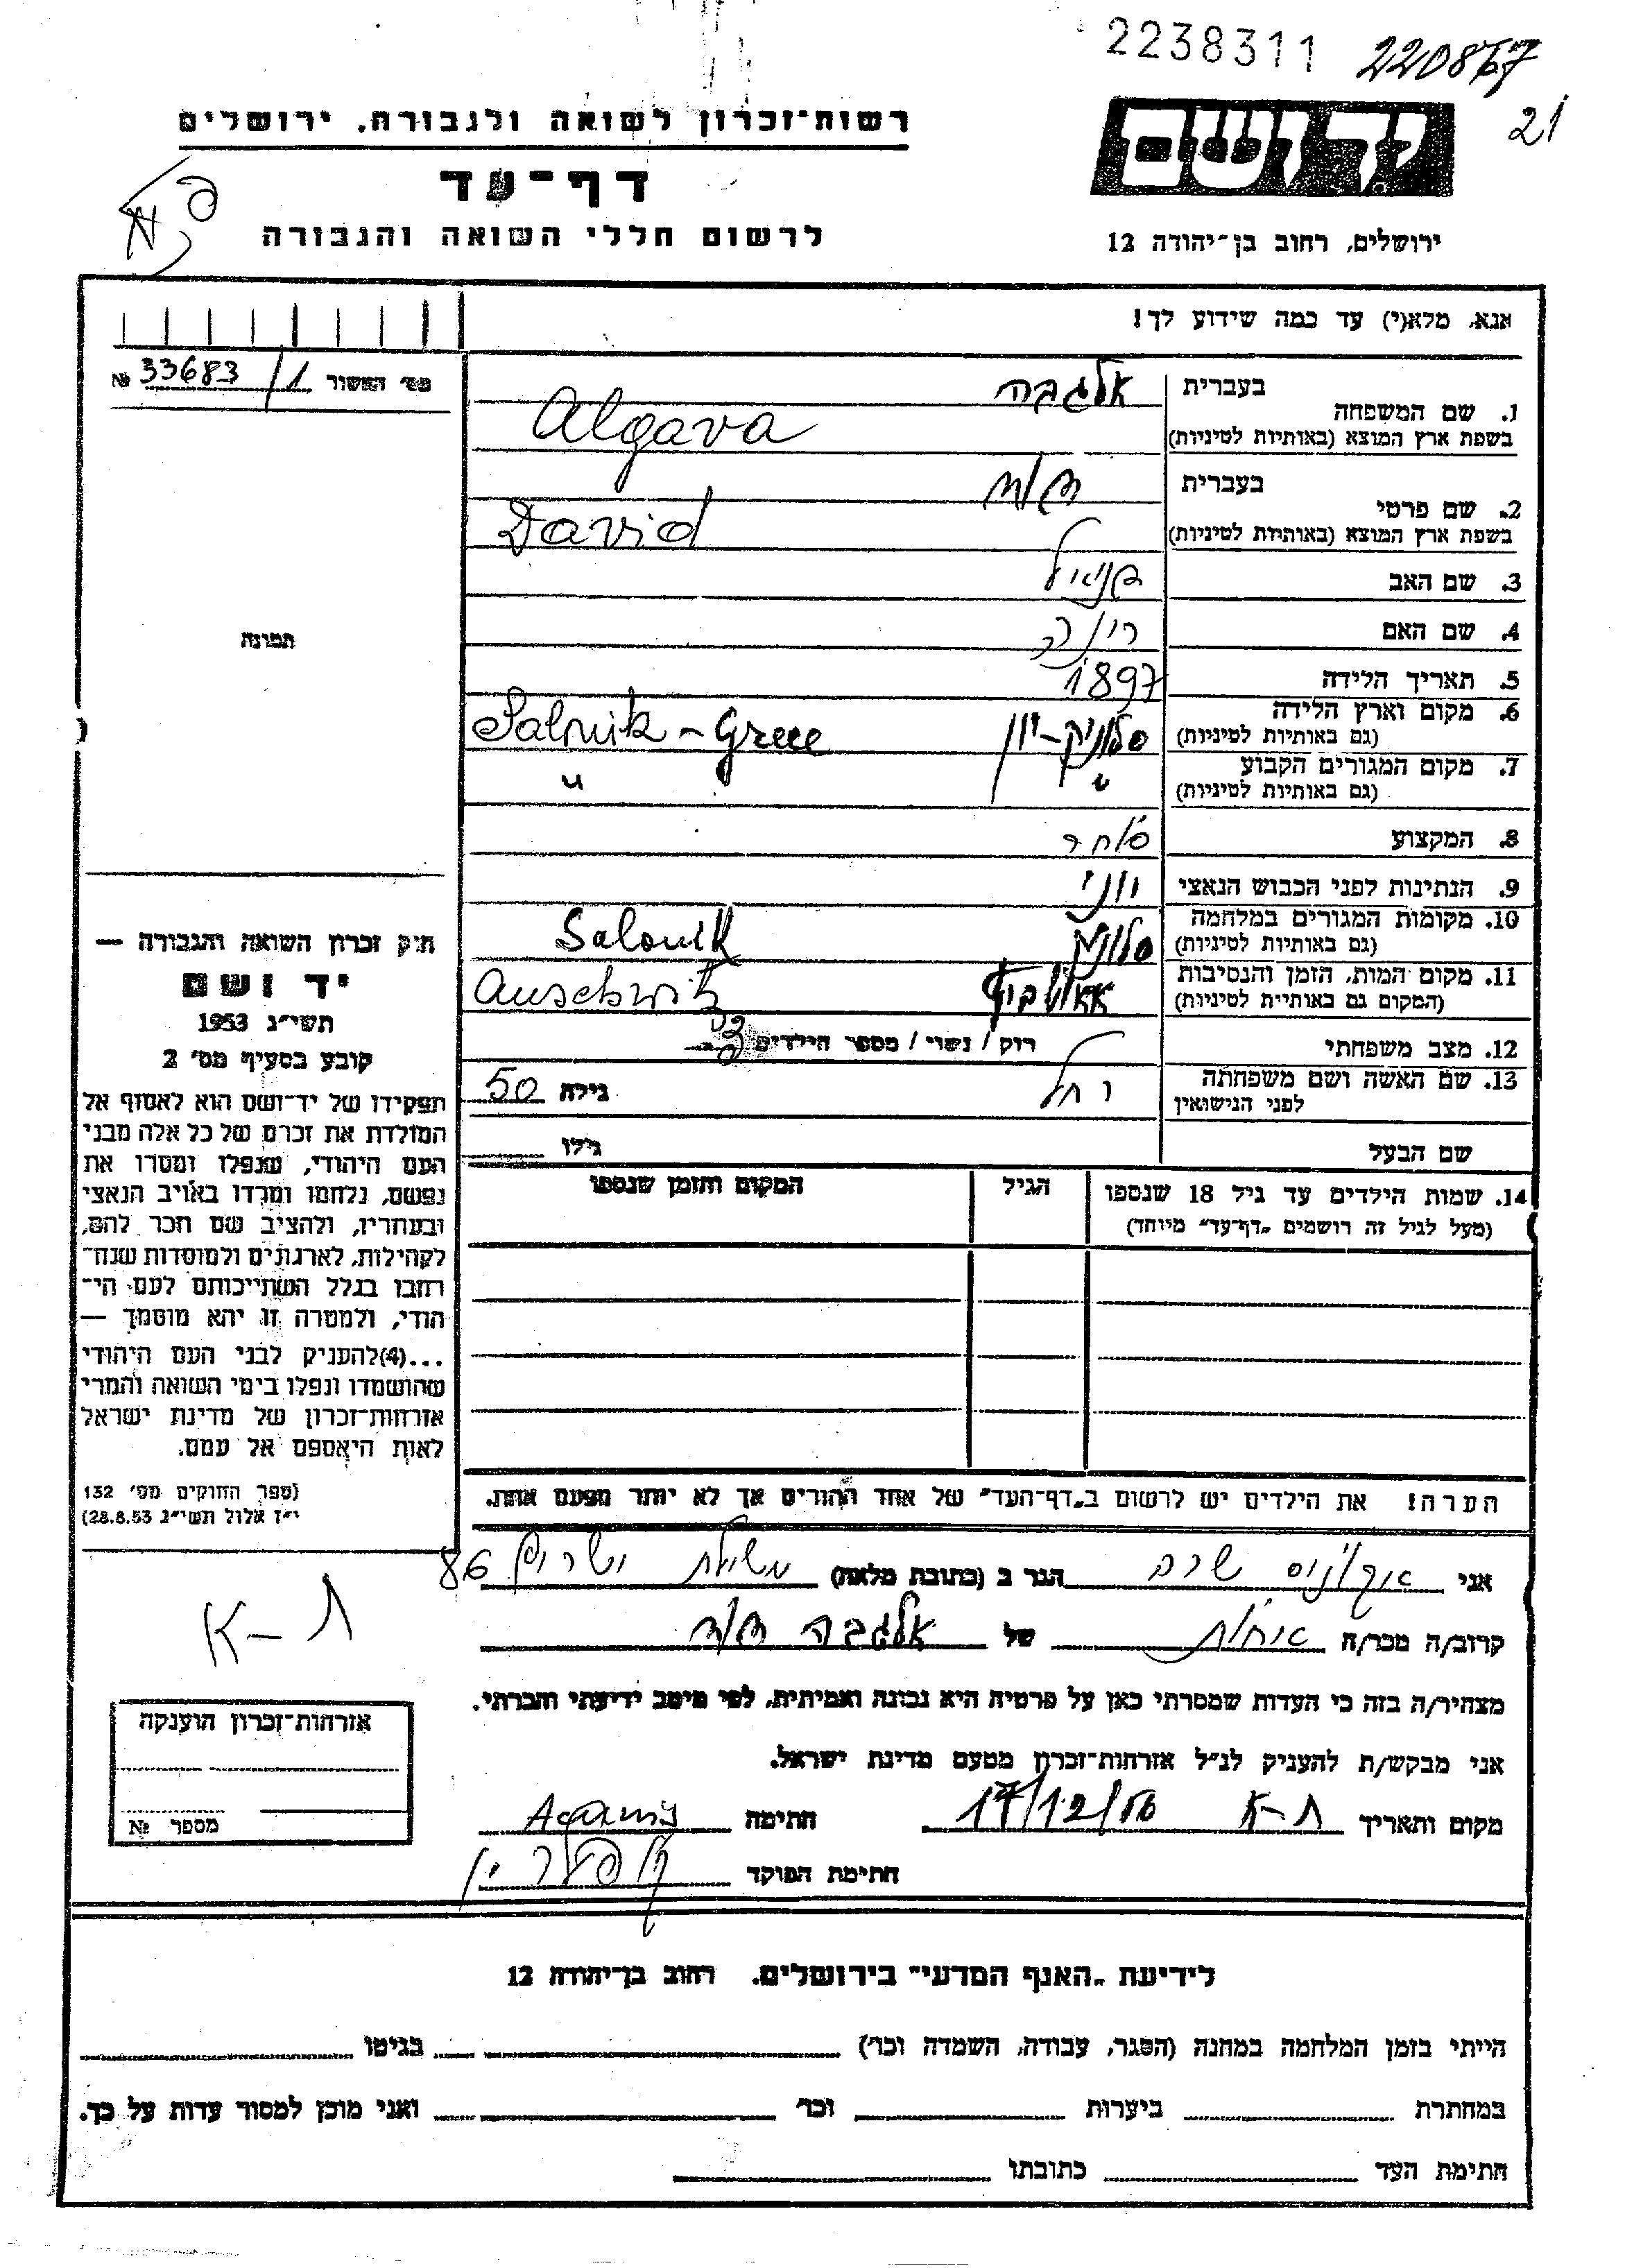 2238311 220867
21
רשות־זכרון לשואה ולגבורה, ירושלים
דף־עד
לרשום חללי השואה והגבורה
יד ושם
ירושלים, רחוב בן־יהודה 12
אנא, מלא(י) עד כמה שידוע לך!
מס׳ האשור 33683/1 №
תמונה
1. שם המשפחה
בעברית אלגבה
בשפת ארץ המוצא (באותיות לטיניות) Algava
2. שם פרטי
בעברית דוד
בשפת ארץ המוצא (באותיות לטיניות) David
3. שם האב דניאל
4. שם האם
5. תאריך הלידה 1897
6. מקום וארץ הלידה סלוניק-יון Salonik - Greece
(גם באותיות לטיניות)
7. מקום המגורים הקבוע " "
(גם באותיות לטיניות)
8. המקצוע סוחר
9. הנתינות לפני הכבוש הנאצי יוני
10. מקומות המגורים במלחמה סלוניק Salonik
(גם באותיות לטיניות)
11. מקום המות, הזמן והנסיבות אאושביץ Auschwitz
(המקום גם באותיות לטיניות)
12. מצב משפחתי רוק / נשוי / מספר הילדים
13. שם האשה ושם משפחתה רחל גילה 50
לפני הנישואין
שם הבעל גילו
14. שמות הילדים עד גיל 18 שנספו הגיל המקום והזמן שנספו
(מעל לגיל זה רושמים „דף־עד״ מיוחד)
הערה! את הילדים יש לרשום ב„דף־העד״ של אחד ההורים אך לא יותר מפעם אחת.
חוק זכרון השואה והגבורה —
יד ושם
תשי״ג 1953
קובע בסעיף מס׳ 2
תפקידו של יד־ושם הוא לאסוף אל
המולדת את זכרם של כל אלה מבני
העם היהודי, שנפלו ומסרו את
נפשם, נלחמו ומרדו באויב הנאצי
ובעוזריו, ולהציב שם וזכר להם,
לקהילות, לארגונים ולמוסדות שנח־
רבו בגלל השתייכותם לעם הי־
הודי, ולמטרה זו יהא מוסמך —
...(4)להעניק לבני העם היהודי
שהושמדו ונפלו בימי השואה והמרי
אזרחות־זכרון של מדינת ישראל
לאות היאספם אל עמם.
(ספר החוקים מס׳ 132
י״ז אלול תשי״ג 28.8.53)
אני שרה הגר ב (כתובת מלאה) 86
קרוב/ה מכר/ה אחות של אלגבה דוד
מצהיר/ה בזה כי העדות שמסרתי כאן על פרטיה היא נכונה ואמיתית, לפי מיטב ידיעתי והכרתי.
אני מבקש/ת להעניק לנ״ל אזרחות־זכרון מטעם מדינת ישראל.
מקום ותאריך ת-א 17/12/56 חתימה
חתימת הפוקד
ת-א
אזרחות־זכרון הוענקה
מספר №
לידיעת „האגף המדעי״ בירושלים, רחוב בן־יהודה 12
הייתי בזמן המלחמה במחנה (הסגר, עבודה, השמדה וכו׳) בגיטו
במחתרת ביערות וכו׳ ואני מוכן למסור עדות על כך.
חתימת העד כתובתו